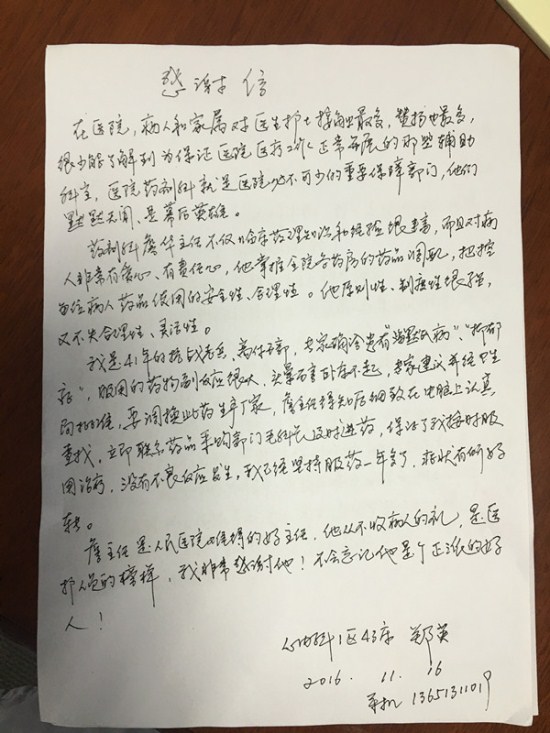 感谢信
在医院，病人和家属对医生护士接触最多，赞扬也最多，
很少能了解到为保证医院医疗工作正常开展的那些辅助
科室，医院药剂科就是医院必不可少的重要保障部门，他们
默默无闻、是幕后英雄。
药剂科詹华主任不仅临床药理知识和经验很丰富，而且对病
人非常有爱心、有责任心，他掌握全院各药房的药品调配，把控
每位病人药品使用的安全性、合理性。他原则性、制度性很强，
又不失合理性、灵活性。
我是41年的抗战老兵、离休干部，专家确诊患有“帕金氏病”、“抑郁
症”，服用的药物副反应很大，头晕不适卧床不起，专家建议并经中生
局批准，要调换此药生产厂家，詹主任得知后细致在电脑上认真
查找，立即联系药品采购部门毛科长及时进药，保证了我按时服
用治疗，没有不良反应发生，我已经坚持服药一年多了，症状有所好
转。
詹主任是人民医院难得的好主任，他从不收病人的礼，是医
护人员的榜样，我非常感谢他！不会忘记他是个正派的好
人！
心内科1区43床 郑英
2016. 11. 16
手机 13651311019